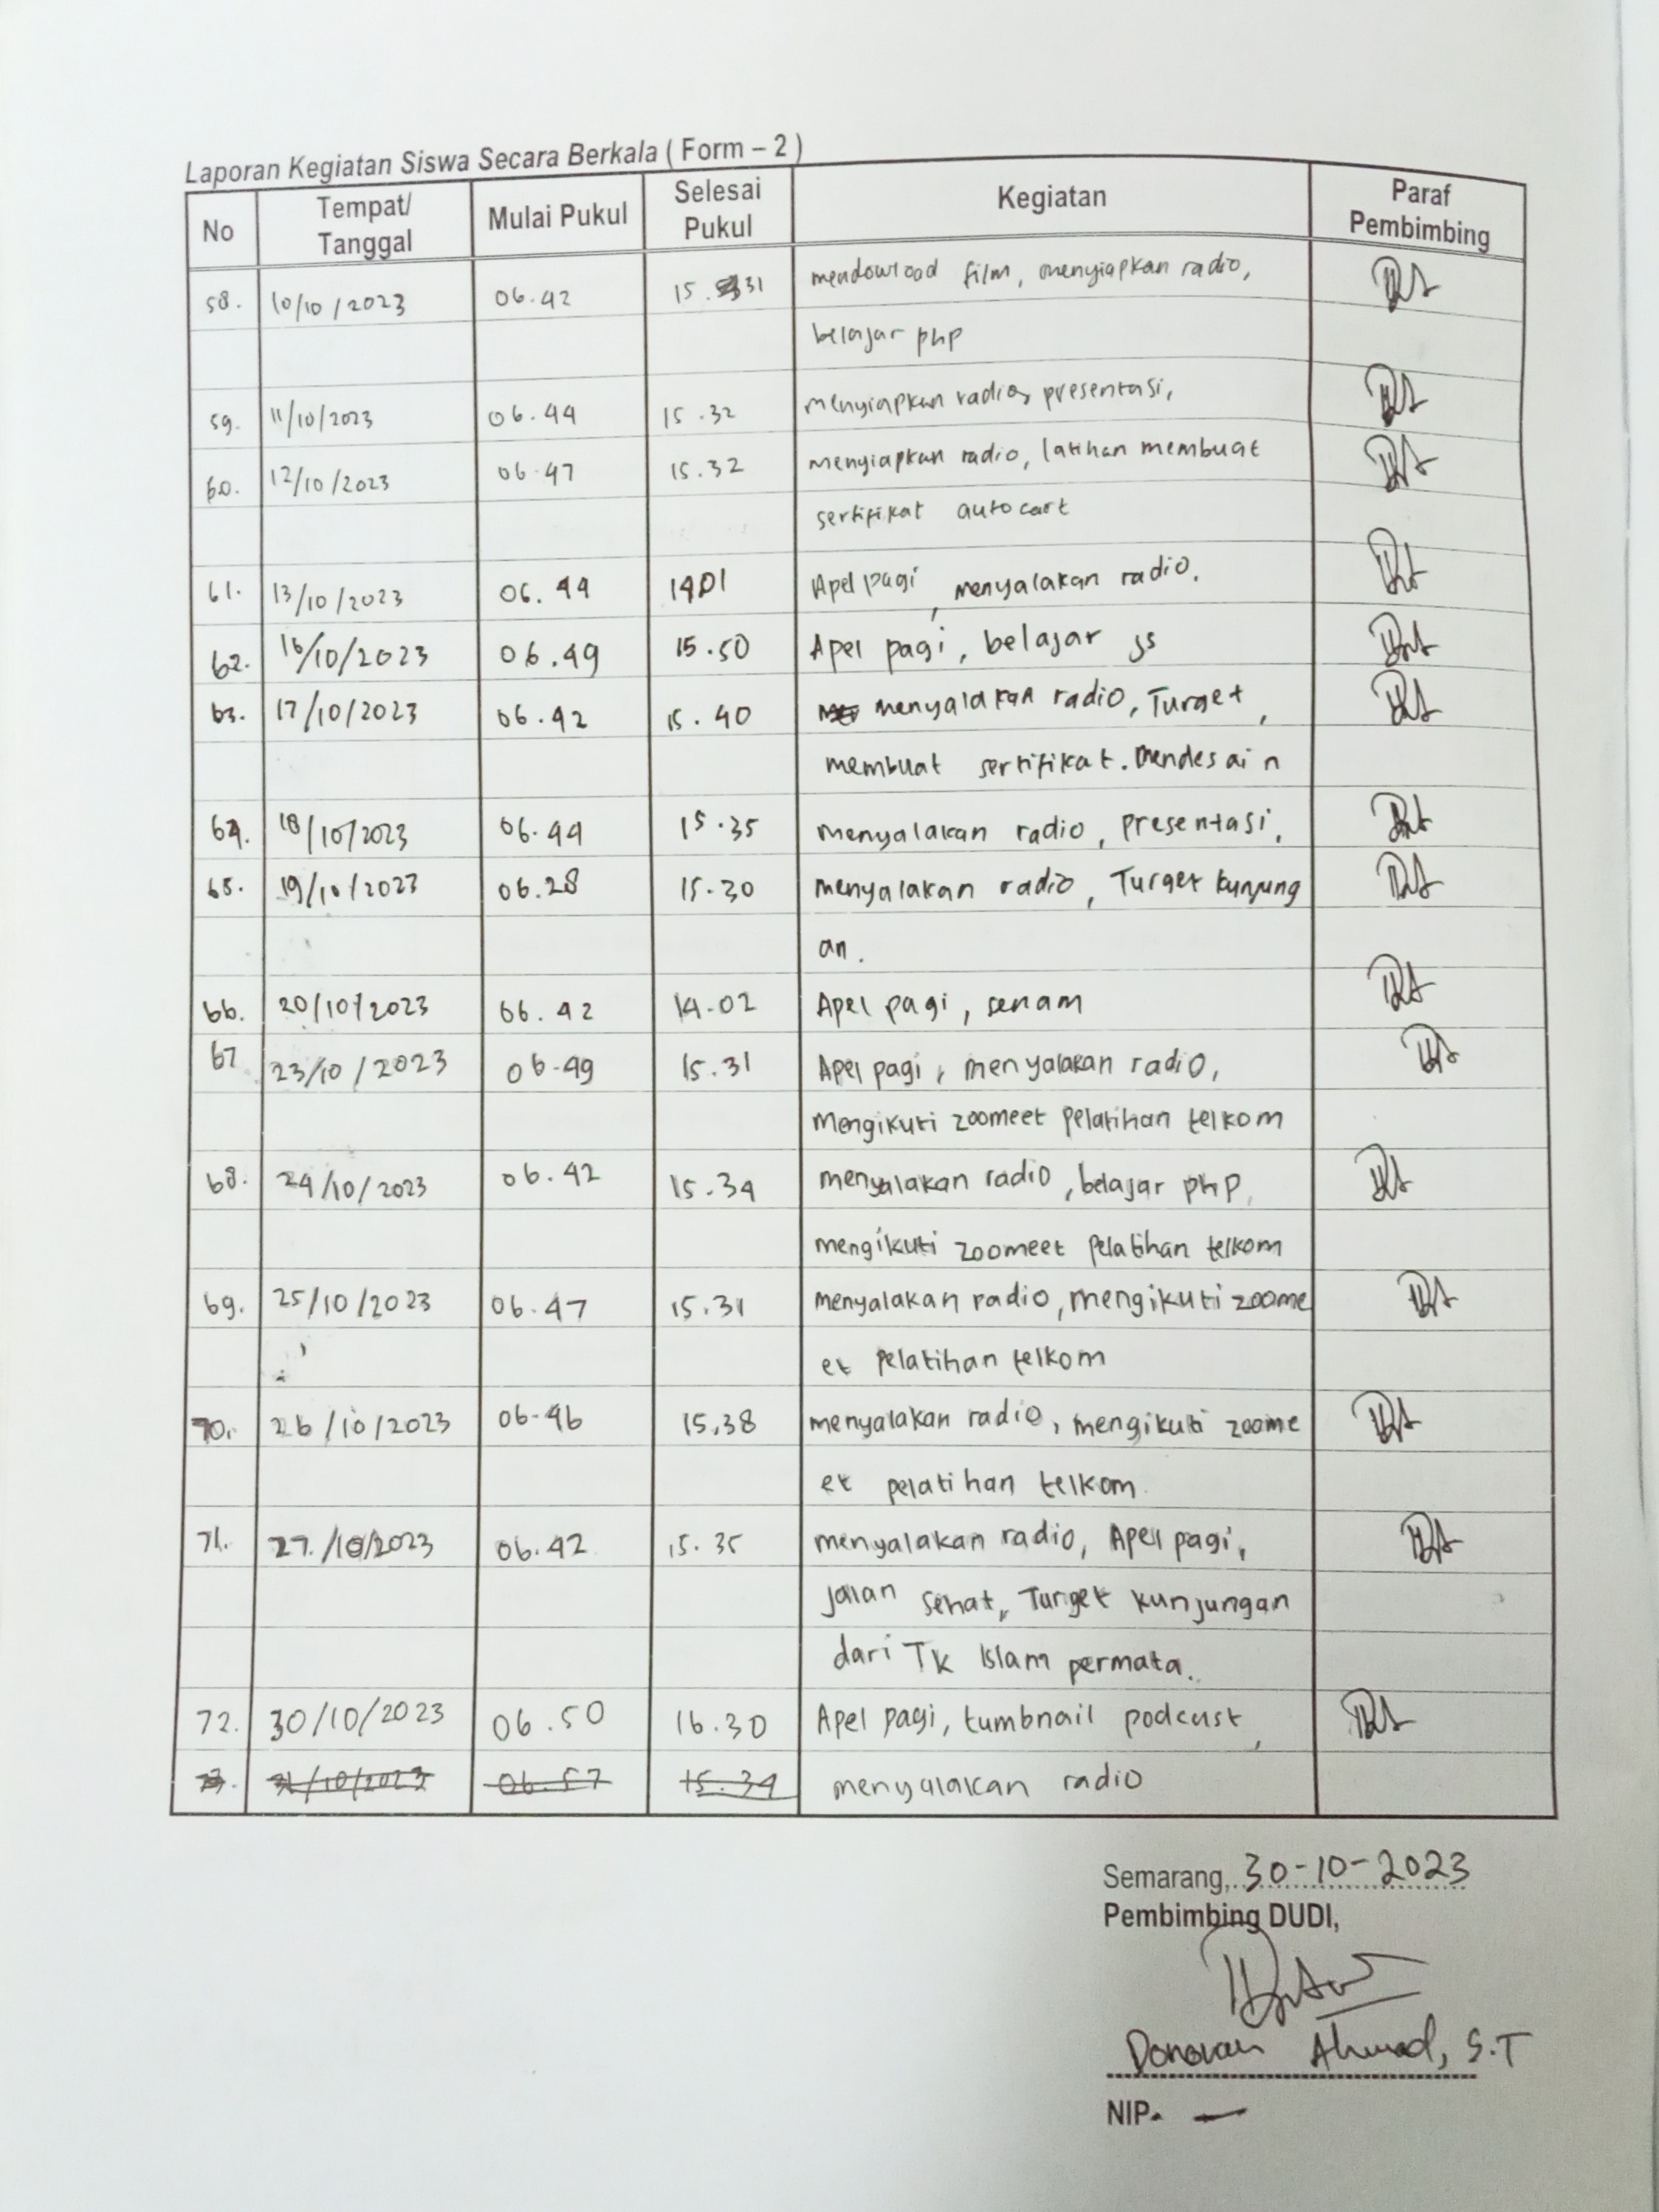 Laporan Kegiatan Siswa Secara Berkala ( Form – 2 )
No Tempat/ Tanggal Mulai Pukul Selesai Pukul Kegiatan Paraf Pembimbing
58. 10/10/2023 06.42 15.31 mendowload film, menyiapkan radio,
belajar php
59. 11/10/2023 06.44 15.32 menyiapkan radio, presentasi,
60. 12/10/2023 06.47 15.32 menyiapkan radio, latihan membuat
sertifikat autocart
61. 13/10/2023 06.44 1401 Apel pagi, menyalakan radio.
62. 16/10/2023 06.49 15.50 Apel pagi, belajar js
63. 17/10/2023 06.42 15.40 menyalakan radio, Turget,
membuat sertifikat. Mendesain
64. 18/10/2023 06.44 15.35 menyalakan radio, presentasi,
65. 19/10/2023 06.28 15.30 menyalakan radio, Turget kunjung
an.
66. 20/10/2023 06.42 14.02 Apel pagi, senam
67 23/10/2023 06.49 15.31 Apel pagi, menyalakan radio,
Mengikuti zoomeet pelatihan telkom
68. 24/10/2023 06.42 15.34 menyalakan radio, belajar php,
mengikuti zoomeet pelatihan telkom
69. 25/10/2023 06.47 15.31 menyalakan radio, mengikuti zoome
et pelatihan telkom
70. 26/10/2023 06.46 15.38 menyalakan radio, mengikuti zoome
et pelatihan telkom.
71. 27/10/2023 06.42 15.35 menyalakan radio, Apel pagi,
jalan sehat, Turget kunjungan
dari TK Islam permata.
72. 30/10/2023 06.50 16.30 Apel pagi, tumbnail podcust,
73. 31/10/2023 06.57 15.34 menyalakan radio
Semarang, 30-10-2023
Pembimbing DUDI,
Donovan Ahmad, S.T
NIP. —